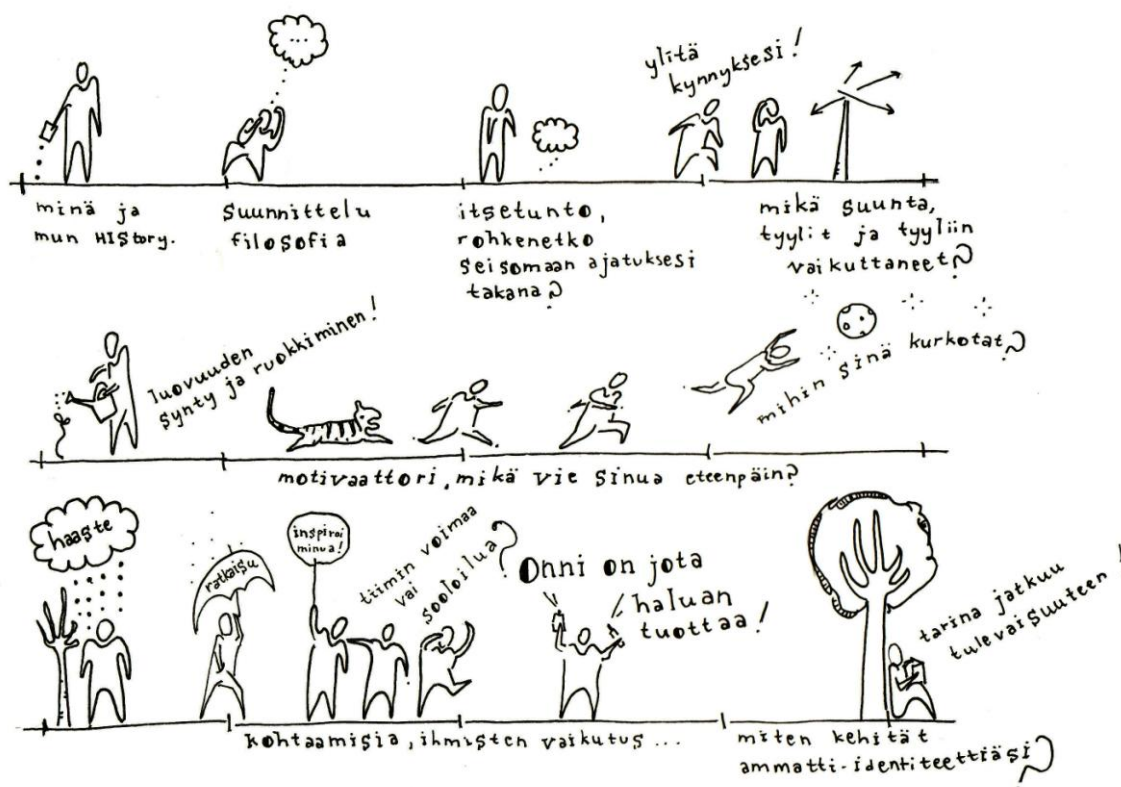 ...
ylitä
kynnyksesi!
minä ja
mun HIStory.
Suunnittelu
filosofia
itsetunto,
rohkenetko
seisomaan ajatuksesi
takana?
mikä suunta,
tyylit ja tyyliin
vaikuttaneet?
luovuuden
synty ja ruokkiminen!
mihin sinä kurkotat?
motivaattori, mikä vie sinua eteenpäin?
haaste
ratkaisu
inspiroi
minua!
tiimin voimaa
vai
sooloilua?
Onni on jota
haluan
tuottaa!
tarina jatkuu
tulevaisuuteen!
kohtaamisia, ihmisten vaikutus...
miten kehität
ammatti-identiteettiäsi?